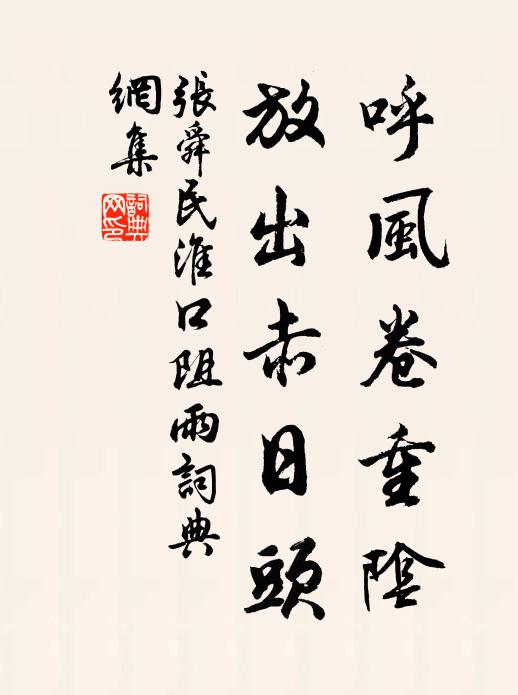 呼風卷重陰
放出赤日頭
張舜民淮口阻雨詞典
網集
詞典網印